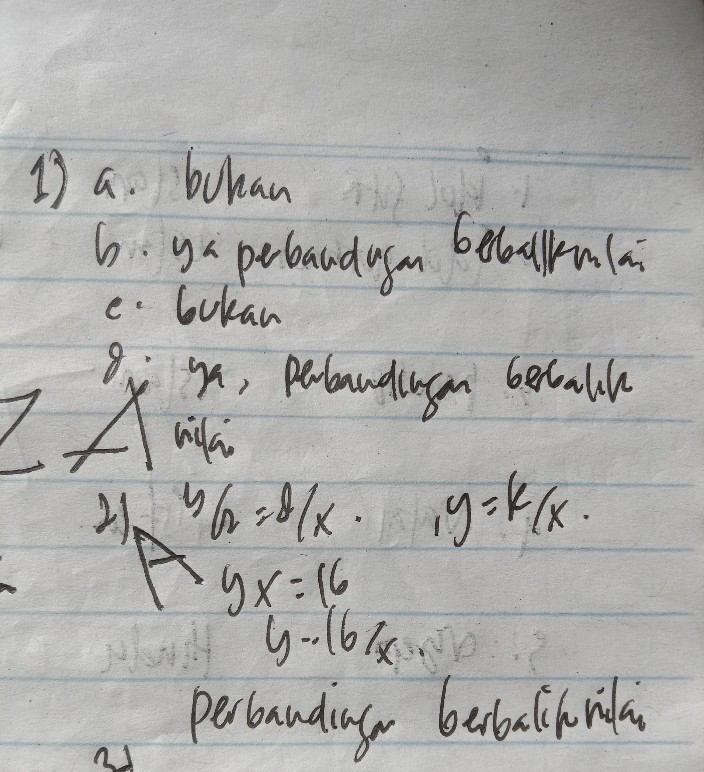 1) a. bukan
b. ya perbandingan berbalik nilai
c. bukan
d. ya, perbandingan berbalik
nilai
ZA
2) y/2 = 8/x . , y = k/x .
A
yx = 16
y = 16/x .
perbandingan berbalik nilai
3)